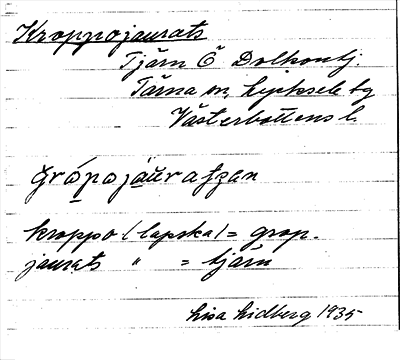 Kroppojaurats
Tjärn Ö Dolkontj.
Tärna sn, Lycksele tg
Västerbottens l.
grópojäuratzan
kroppo (lapska) = grop.
jaurats " = tjärn
Lisa Lidberg 1935